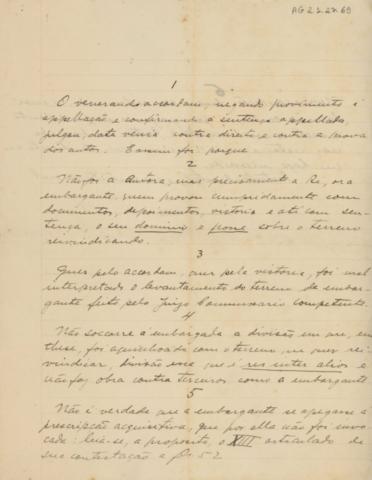 AG 22.22.69
1
O venerando accordam, negando provimento á
appellação e confirmando a sentença appellada,
julgou, data venia, contra direito e contra a prova
dos autos. E assim foi porque
2
Não foi a Autora, mas precisamente a Ré, ora
embargante, quem provou cumpridamente com
documentos, depoimentos, vistoria e até com sen-
tença, o seu dominio e posse sobre o terreno
reivindicando.
3
Quer pelo accordam, quer pela vistoria, foi mal
interpretado o levantamento do terreno da embar-
gante feito pelo Juizo Commissario competente.
4
Não soccorre á embargada a divisão em que, em
these, foi aquinhoada com o terreno que quer rei-
vindicar, divisão essa que é res inter alios e
não faz obra contra terceiros como a embargante
5
Não é verdade que a embargante se apegasse á
prescripção acquisitiva, que por ella não foi invo-
cada: leia-se, a proposito, o XIII articulado de
sua contestação a fls 52